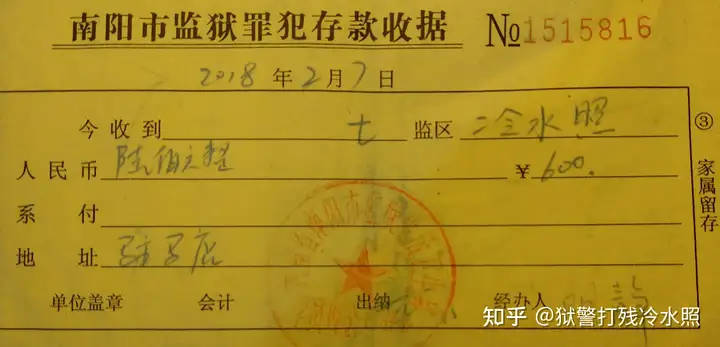 南阳市监狱罪犯存款收据 №1515816
2018 年 2 月 7 日
今收到 七 监区 冷水照
人民币 陆佰元整 ¥ 600.
系付
地址 驻马店
单位盖章 会计 出纳 经办人
③ 家属留存
知乎 @狱警打残冷水照